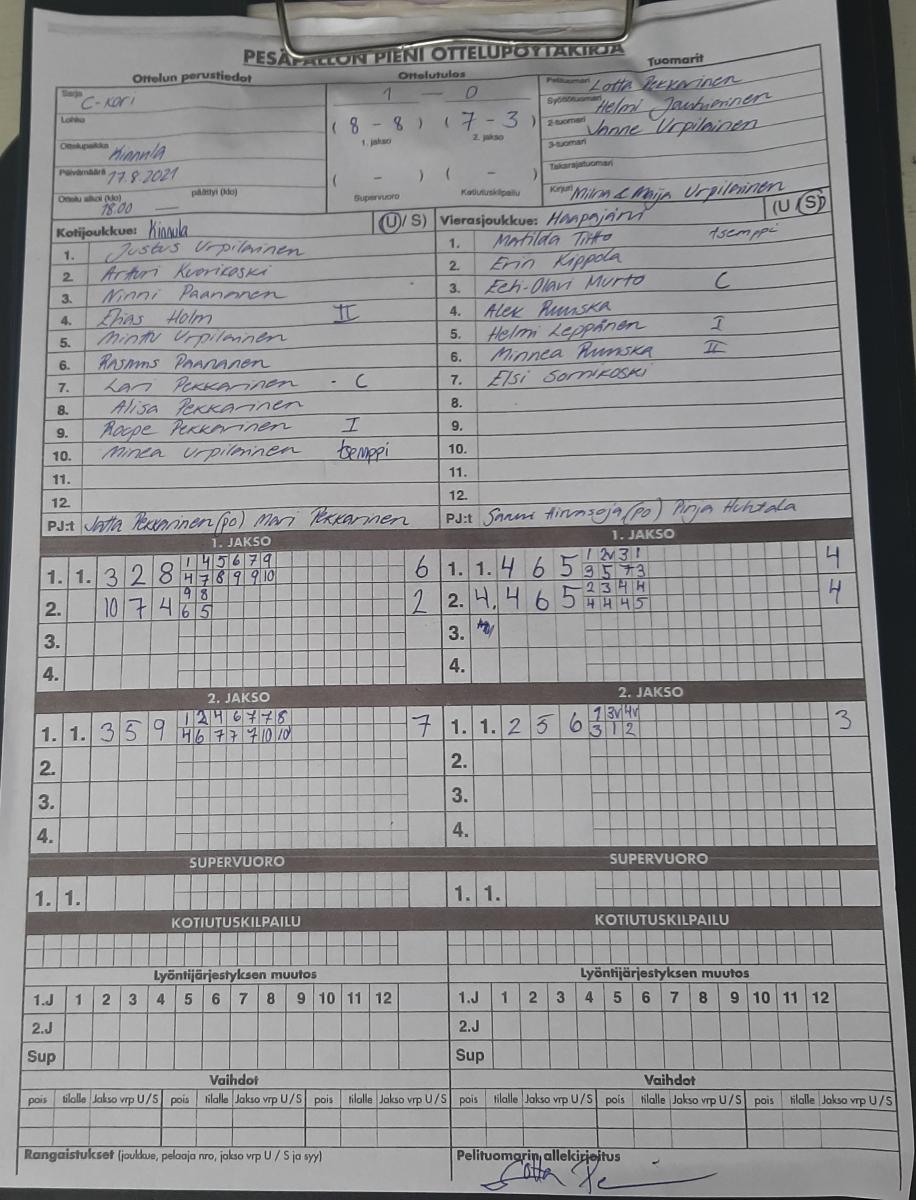 PESÄPALLON PIENI OTTELUPÖYTÄKIRJA
Ottelun perustiedot
Sarja C-kori
Lohko
Ottelupaikka Kinnula
Päivämäärä 17.8.2021
Ottelu alkoi (klo) 18.00 päättyi (klo) —
Ottelutulos
1 — 0
( 8 - 8 ) ( 7 - 3 )
1. jakso 2. jakso
( - ) ( - )
Supervuoro Kotiutuskilpailu
Tuomarit
Pelituomari Lotta Pekkarinen
Syöttötuomari Helmi
2-tuomari Janne Urpilainen
3-tuomari
Takarajatuomari
Kirjuri Milna & Maija Urpilainen
Kotijoukkue: Kinnula (U / S)
1. Justus Urpilainen
2. Artturi Kuorikoski
3. Ninni Paananen
4. Elias Holm II
5. Minttu Urpilainen
6. Rasmus Paananen
7. Lari Pekkarinen - C
8. Alisa Pekkarinen
9. Roope Pekkarinen I
10. Minea Urpilainen tsemppi
11.
12.
PJ:t Jatta Pekkarinen (po) Mari Pekkarinen
Vierasjoukkue: Haapajärvi (U / S)
1. Matilda Tiitto tsemppi
2. Erin Kippola
3. Eeti-Olavi Murto C
4. Alex Ruuska
5. Helmi Leppänen I
6. Minnea Ruuska II
7. Elsi Sornikoski
8.
9.
10.
11.
12.
PJ:t Sanni Hirvasoja (po) Pinja Huhtala
1. JAKSO
1. 1. 3 2 8 1 4 5 6 7 9 6
4 7 8 9 9 10
2. 10 7 4 9 8 2
6 5
3.
4.
1. JAKSO
1. 1. 4 6 5 1 2v 3 1 4
3 5 7 3
2. 4. 4 6 5 2 3 4 4 4
4 4 4 5
3.
4.
2. JAKSO
1. 1. 3 5 9 1 2 4 6 7 7 8 7
4 6 7 7 7 10 10
2.
3.
4.
2. JAKSO
1. 1. 2 5 6 1 3v 4v 3
3 1 2
2.
3.
4.
SUPERVUORO
1. 1.
SUPERVUORO
1. 1.
KOTIUTUSKILPAILU
KOTIUTUSKILPAILU
Lyöntijärjestyksen muutos
1.J 1 2 3 4 5 6 7 8 9 10 11 12
2.J
Sup
Lyöntijärjestyksen muutos
1.J 1 2 3 4 5 6 7 8 9 10 11 12
2.J
Sup
Vaihdot
pois tilalle Jakso vrp U / S pois tilalle Jakso vrp U / S pois tilalle Jakso vrp U / S
Vaihdot
pois tilalle Jakso vrp U / S pois tilalle Jakso vrp U / S pois tilalle Jakso vrp U / S
Rangaistukset (joukkue, pelaaja nro, jakso vrp U / S ja syy)
Pelituomarin allekirjoitus